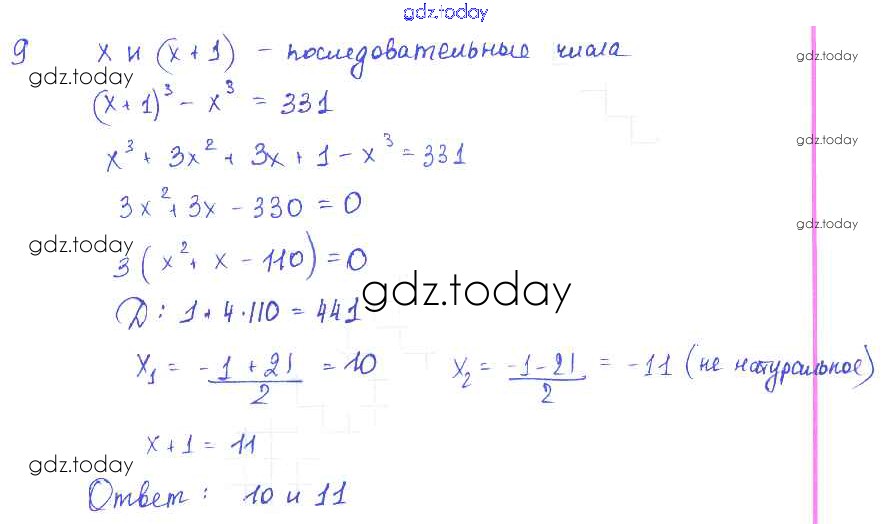 gdz.today
9 x и (x + 1) - последовательные числа
gdz.today gdz.today
(x + 1)³ - x³ = 331
gdz.today
x³ + 3x² + 3x + 1 - x³ = 331
3x² + 3x - 330 = 0
gdz.today
gdz.today
3 (x² + x - 110) = 0
gdz.today
D: 1 + 4·110 = 441
x₁ = (-1 + 21)/2 = 10 x₂ = (-1 - 21)/2 = -11 (не натуральное)
x + 1 = 11
gdz.today
Ответ: 10 и 11